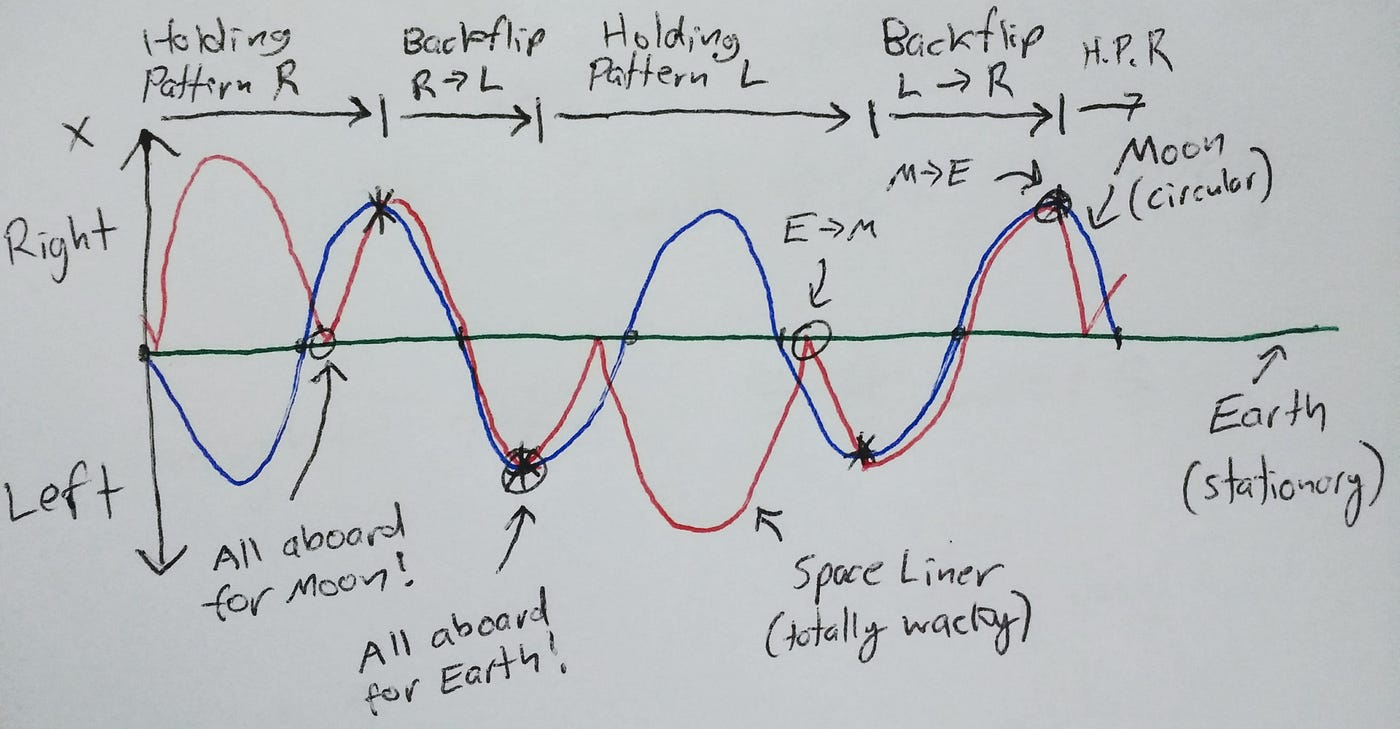 Holding
Pattirn R
Backflip
R→L
Holding
Pattern L
Backflip
L → R
H.P.R
X
Right
Left
M→E
Moon
(circular)
E→M
Earth
(stationory)
All aboard
for Moon!
All aboard
for Earth!
Space Liner
(totally wacky)